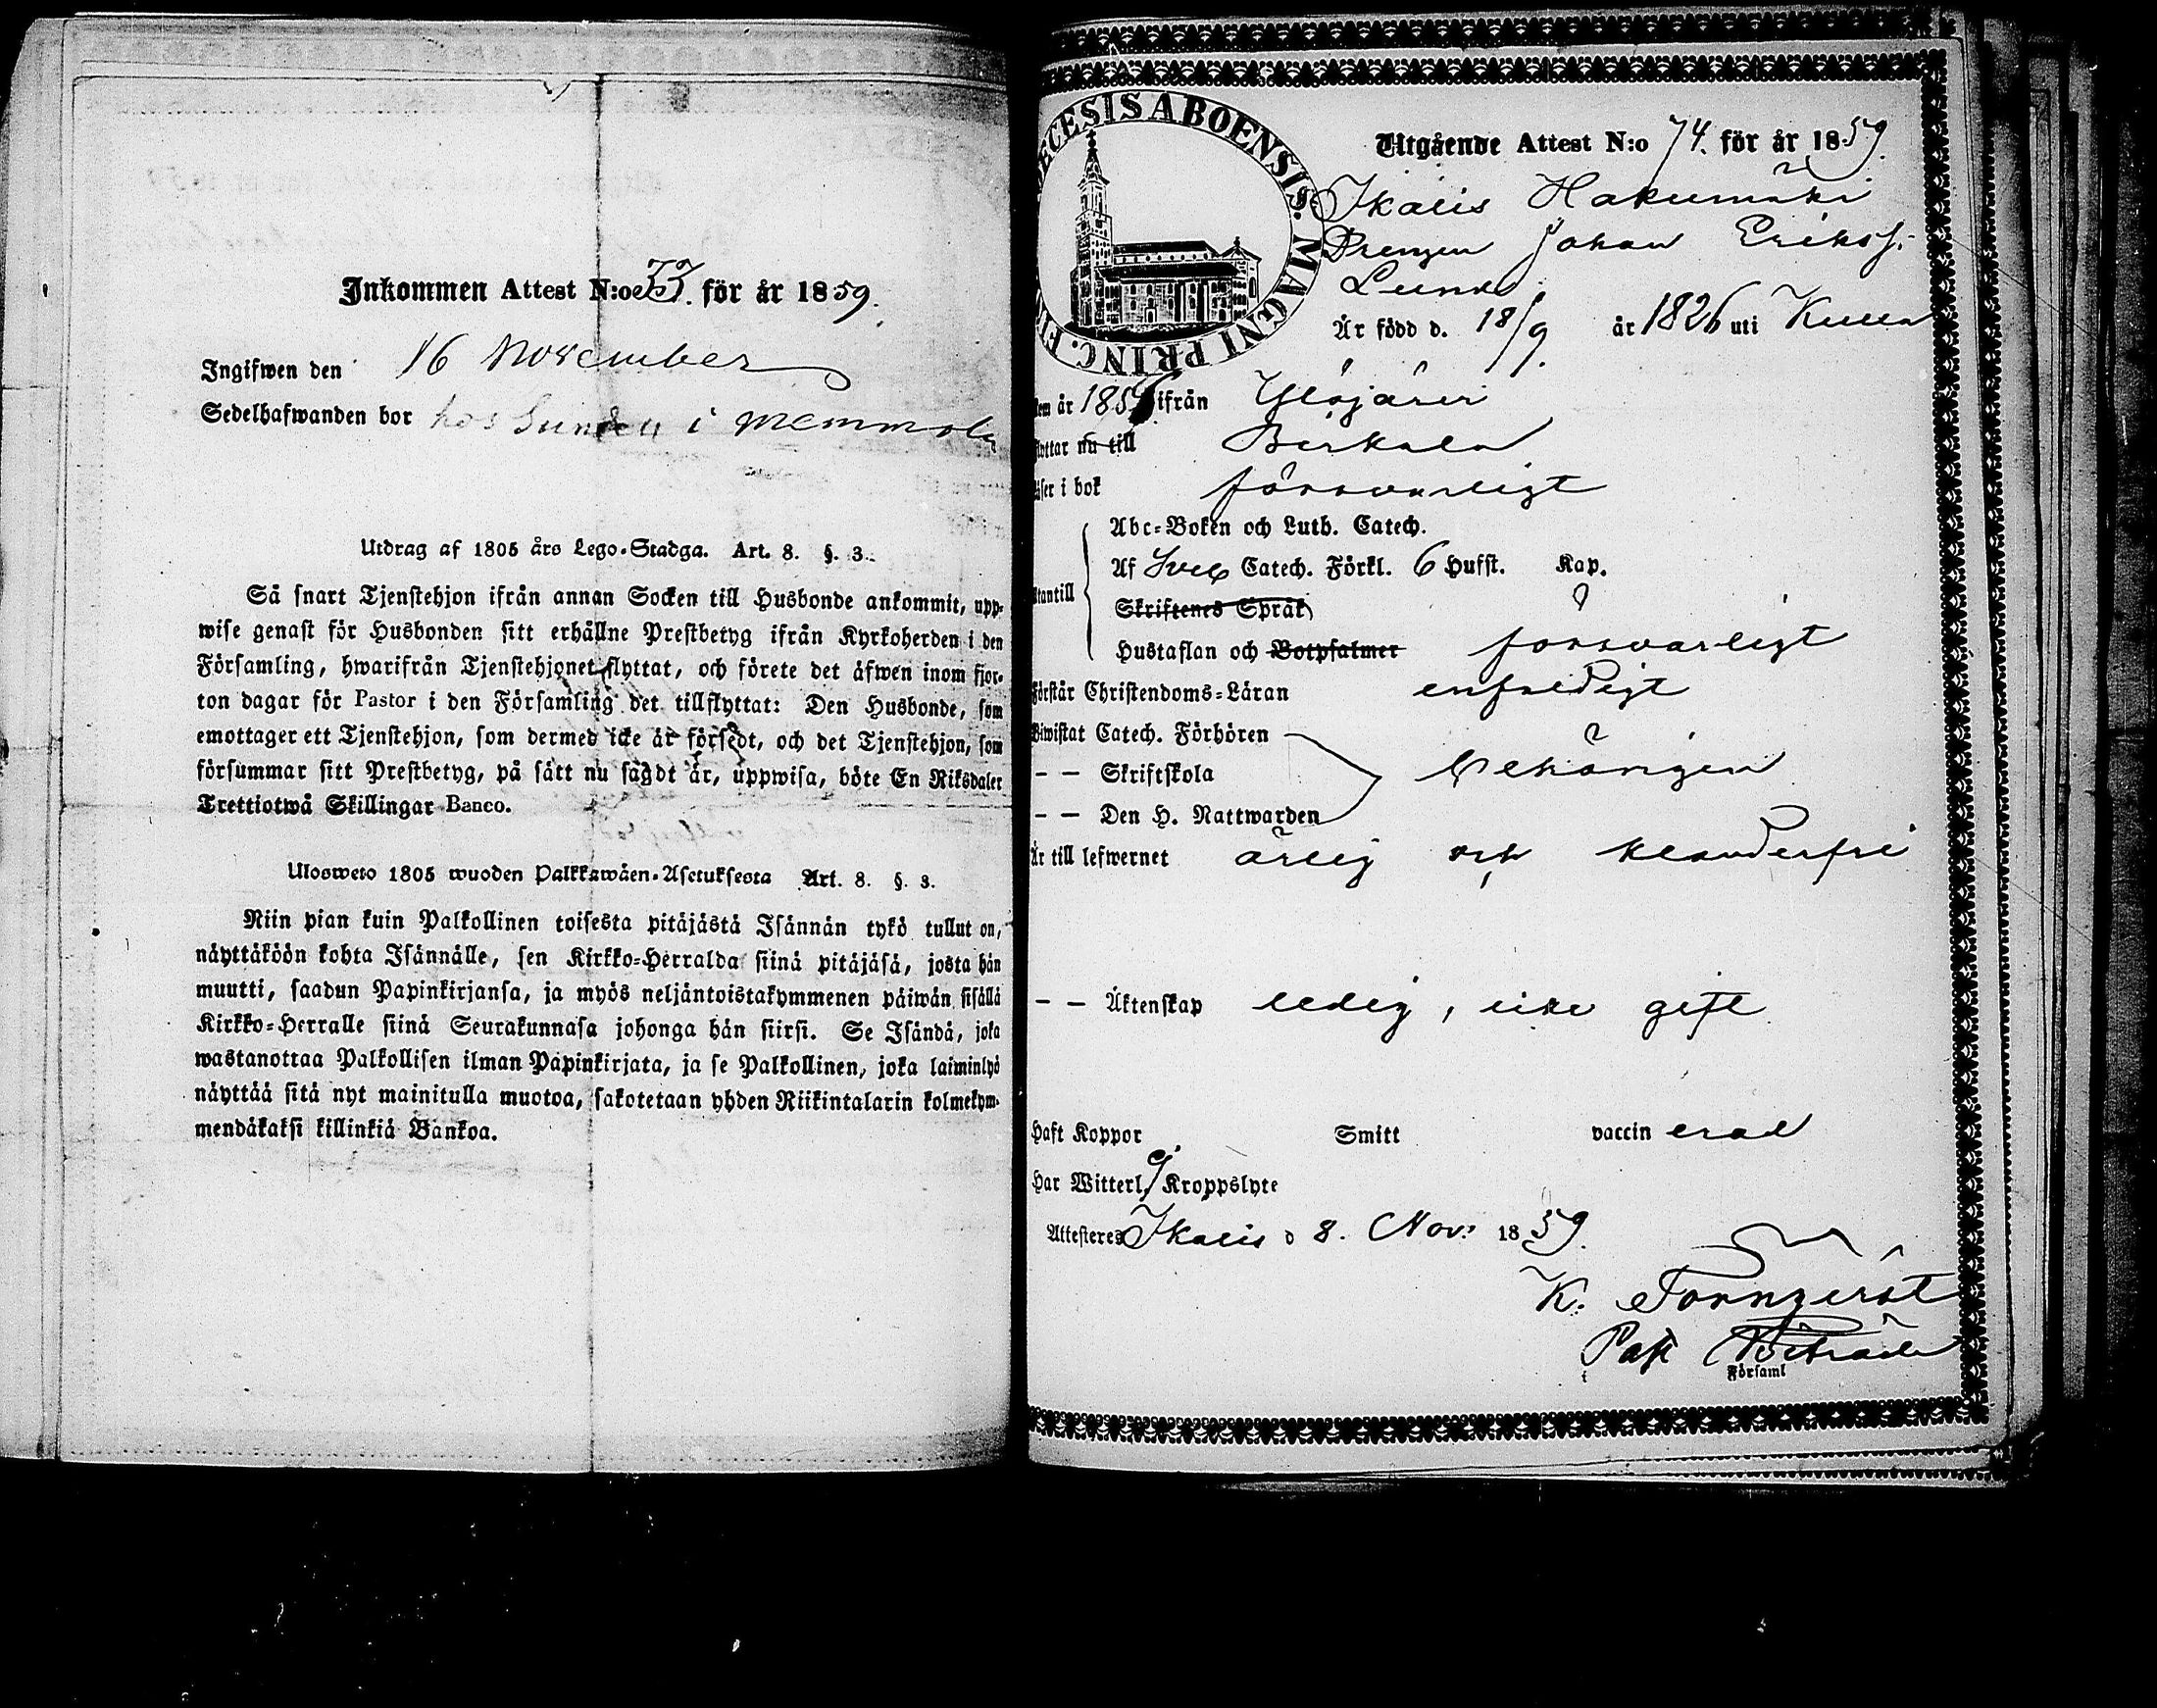 Inkommen Attest N:o 33. för år 1859.
Ingifwen den 16 November
Sedelhafwanden bor hos i
Utdrag af 1805 års Lego-Stadga. Art. 8. §. 3.
Så snart Tjenstehjon ifrån annan Socken till Husbonde ankommit, upp-
wise genast för Husbonden sitt erhållne Prestbetyg ifrån Kyrkoherden i den
Församling, hwarifrån Tjenstehjonet flyttat, och förete det äfwen inom fjor-
ton dagar för Pastor i den Församling det tillflyttat: Den Husbonde, som
emottager ett Tjenstehjon, som dermed icke är försedt, och det Tjenstehjon, som
försummar sitt Prestbetyg, på sätt nu sagdt är, uppwisa, böte En Riksdaler
Trettiotwå Skillingar Banco.
Ulosweto 1805 wuoden Palkkawäen-Asetuksesta Art. 8. §. 3.
Niin pian kuin Palkollinen toisesta pitäjästä Isännän tykö tullut on,
näyttäköön kohta Isännälle, sen Kirkko-Herralda siinä pitäjäsä, josta hän
muutti, saadun Papinkirjansa, ja myös neljäntoistakymmenen päiwän sisällä
Kirkko-Herralle siinä Seurakunnasa johonga hän siirsi. Se Isändä, joka
wastanottaa Palkollisen ilman Papinkirjata, ja se Palkollinen, joka laiminlyö
näyttää sitä nyt mainitulla muotoa, sakotetaan yhden Riikintalarin kolmekym-
mendäkaksi killinkiä Bankoa.
ECESIS ABOENSIS. MAGNI PRINC. FI
Utgående Attest N:o 74. för år 1859.
Ikalis Hakumäki
Drengen Johan Erikss.
Lund
Är född d. 18/9. år 1826 uti
år 1859 ifrån Ylöjärvi
nu till Birkala
i bok försvarligt
Abc-Boken och Luth. Catech.
Af Sveb Catech. Förkl. 6 Hufst. Kap.
Skriftenes Språk
Hustaflan och Botpsalmer försvarligt
Förstår Christendoms-Läran enfaldigt
Biwistat Catech. Förhören
— — Skriftskola behörigen
— — Den H. Nattwarden
Är till lefwernet ärlig och klanderfri
— — Äktenskap ledig, icke gift
Haft Koppor Smitt vaccinerad
Har Witterl. ej Kroppslyte
Attesteres Ikalis d 8. Nov. 1859.
K.
Past
i Församl